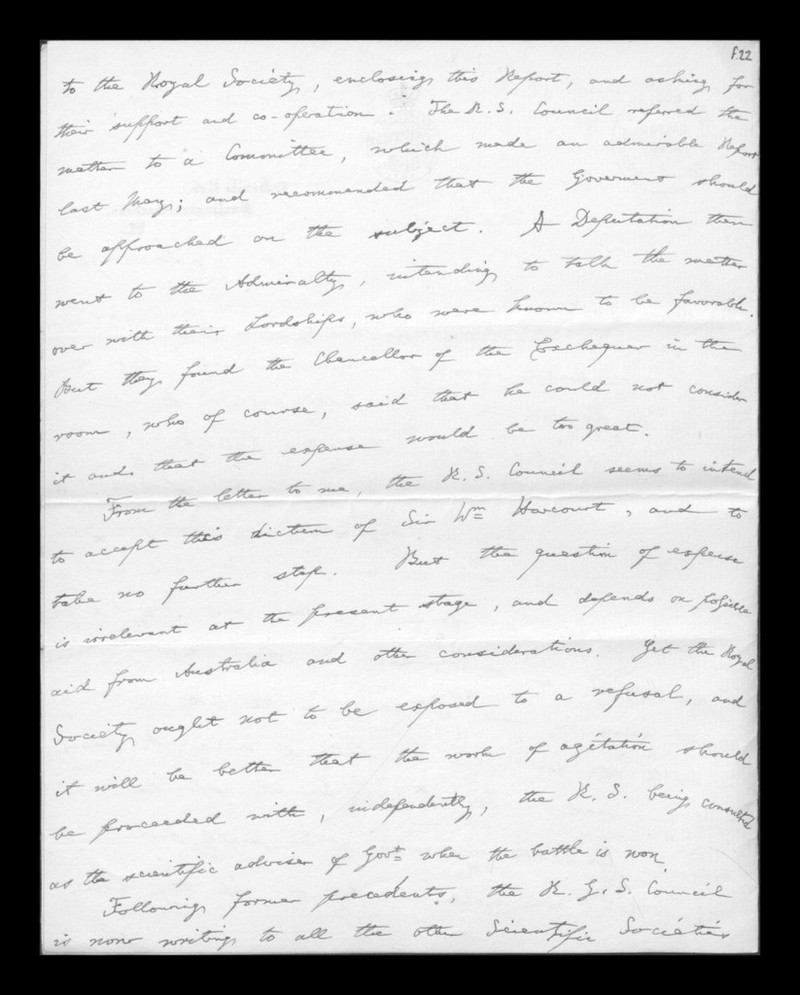 f.22
to the Royal Society, enclosing this Report, and asking for
their support and co-operation. The R.S. Council referred the
matter to a Committee, which made an admirable Report
last May; and recommended that the Goverment should
be approached on the subject. A Deputation then
went to the Admiralty, intending to talk the matter
over with their Lordships, who were known to be favorable.
But they found the Chancellor of the Exchequer in the
room, who of course, said that he could not consider
it and that the expense would be too great.
From the letter to me, the R.S. Council seems to intend
to accept this dictum of Sir Wm Harcourt, and to
take no further step. But the question of expense
is irrelevant at the present stage, and depends on possible
aid from Australia and other considerations. Yet the Royal
Society ought not to be exposed to a refusal, and
it will be better that the work of agitation should
be proceeded with, independently, the R.S. being consulted
as the scientific adviser of Govt when the battle is won.
Following former precedents, the R.G.S. Council
is now writing to all the other Scientific Societies